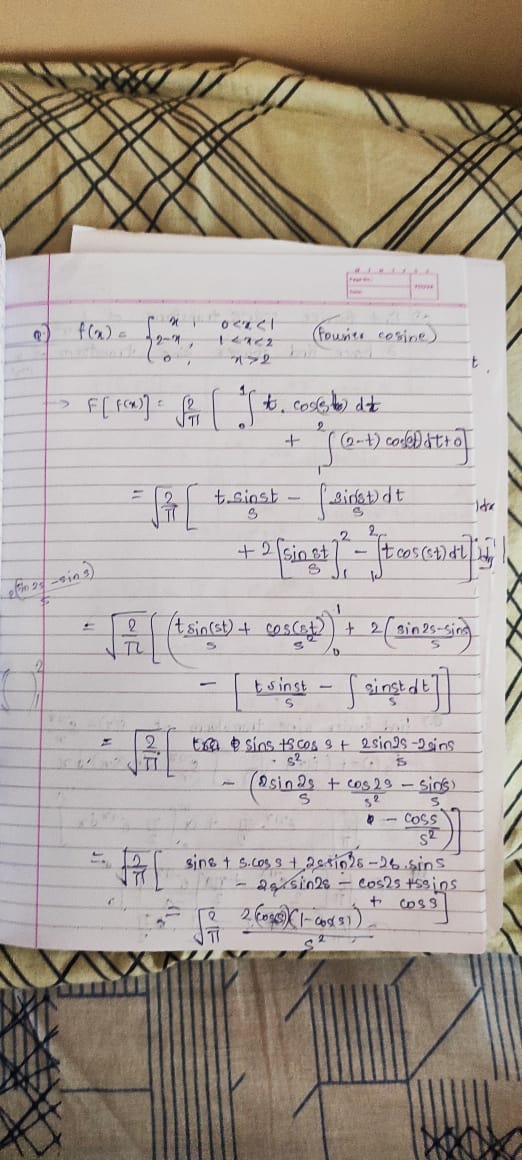 Q.) f(x) = { x , 0<x<1 (fourier cosine)
2-x, 1<x<2
0 , x>2
t.
→ F[f(x)] = √(2/π) [ ₀∫¹ t. cos(st) dt
+ ₁∫² (2-t) cos(st) dt + 0]
= √(2/π) [ t.sinst/s - ∫ sin(st)/s dt
+ 2[sin st/s]₁² - ₁∫² t cos(st) dt]
2(sin2s - sins)/s
= √(2/π) [ (t sin(st)/s + cos(st)/s²)₀¹ + 2(sin2s-sins/s)
- [ t sinst/s - ∫ sinst/s dt ]]
= √(2/π) [ sins + cos s/s² + 2sin2s - 2sins/s
- (2sin2s/s + cos2s/s² - sin(s)/s
- coss/s²)]
= √(2/π) [ sins + s.cos s + 2s sin2s - 2s.sins
- 2s sin2s - cos2s + ssins
+ coss]
= √(2/π) 2(coss)(1-cos(s))/s²